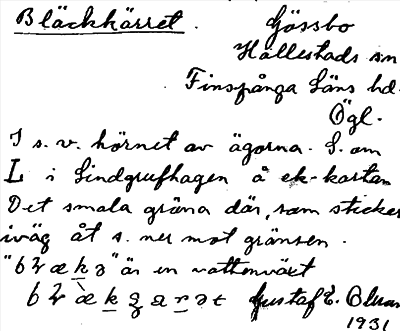 Bläckkärret. Gössbo
Hällestads sn
Finspånga Läns hd.
Ögl.
I s.v. hörnet av ägorna. S. om
L i Lindgrufhagen å ek-kartan
Det smala gröna där, som sticker
iväg åt s. ner mot gränsen.
"bɫækə" är en vattenväxt
Gustaf E.
1931